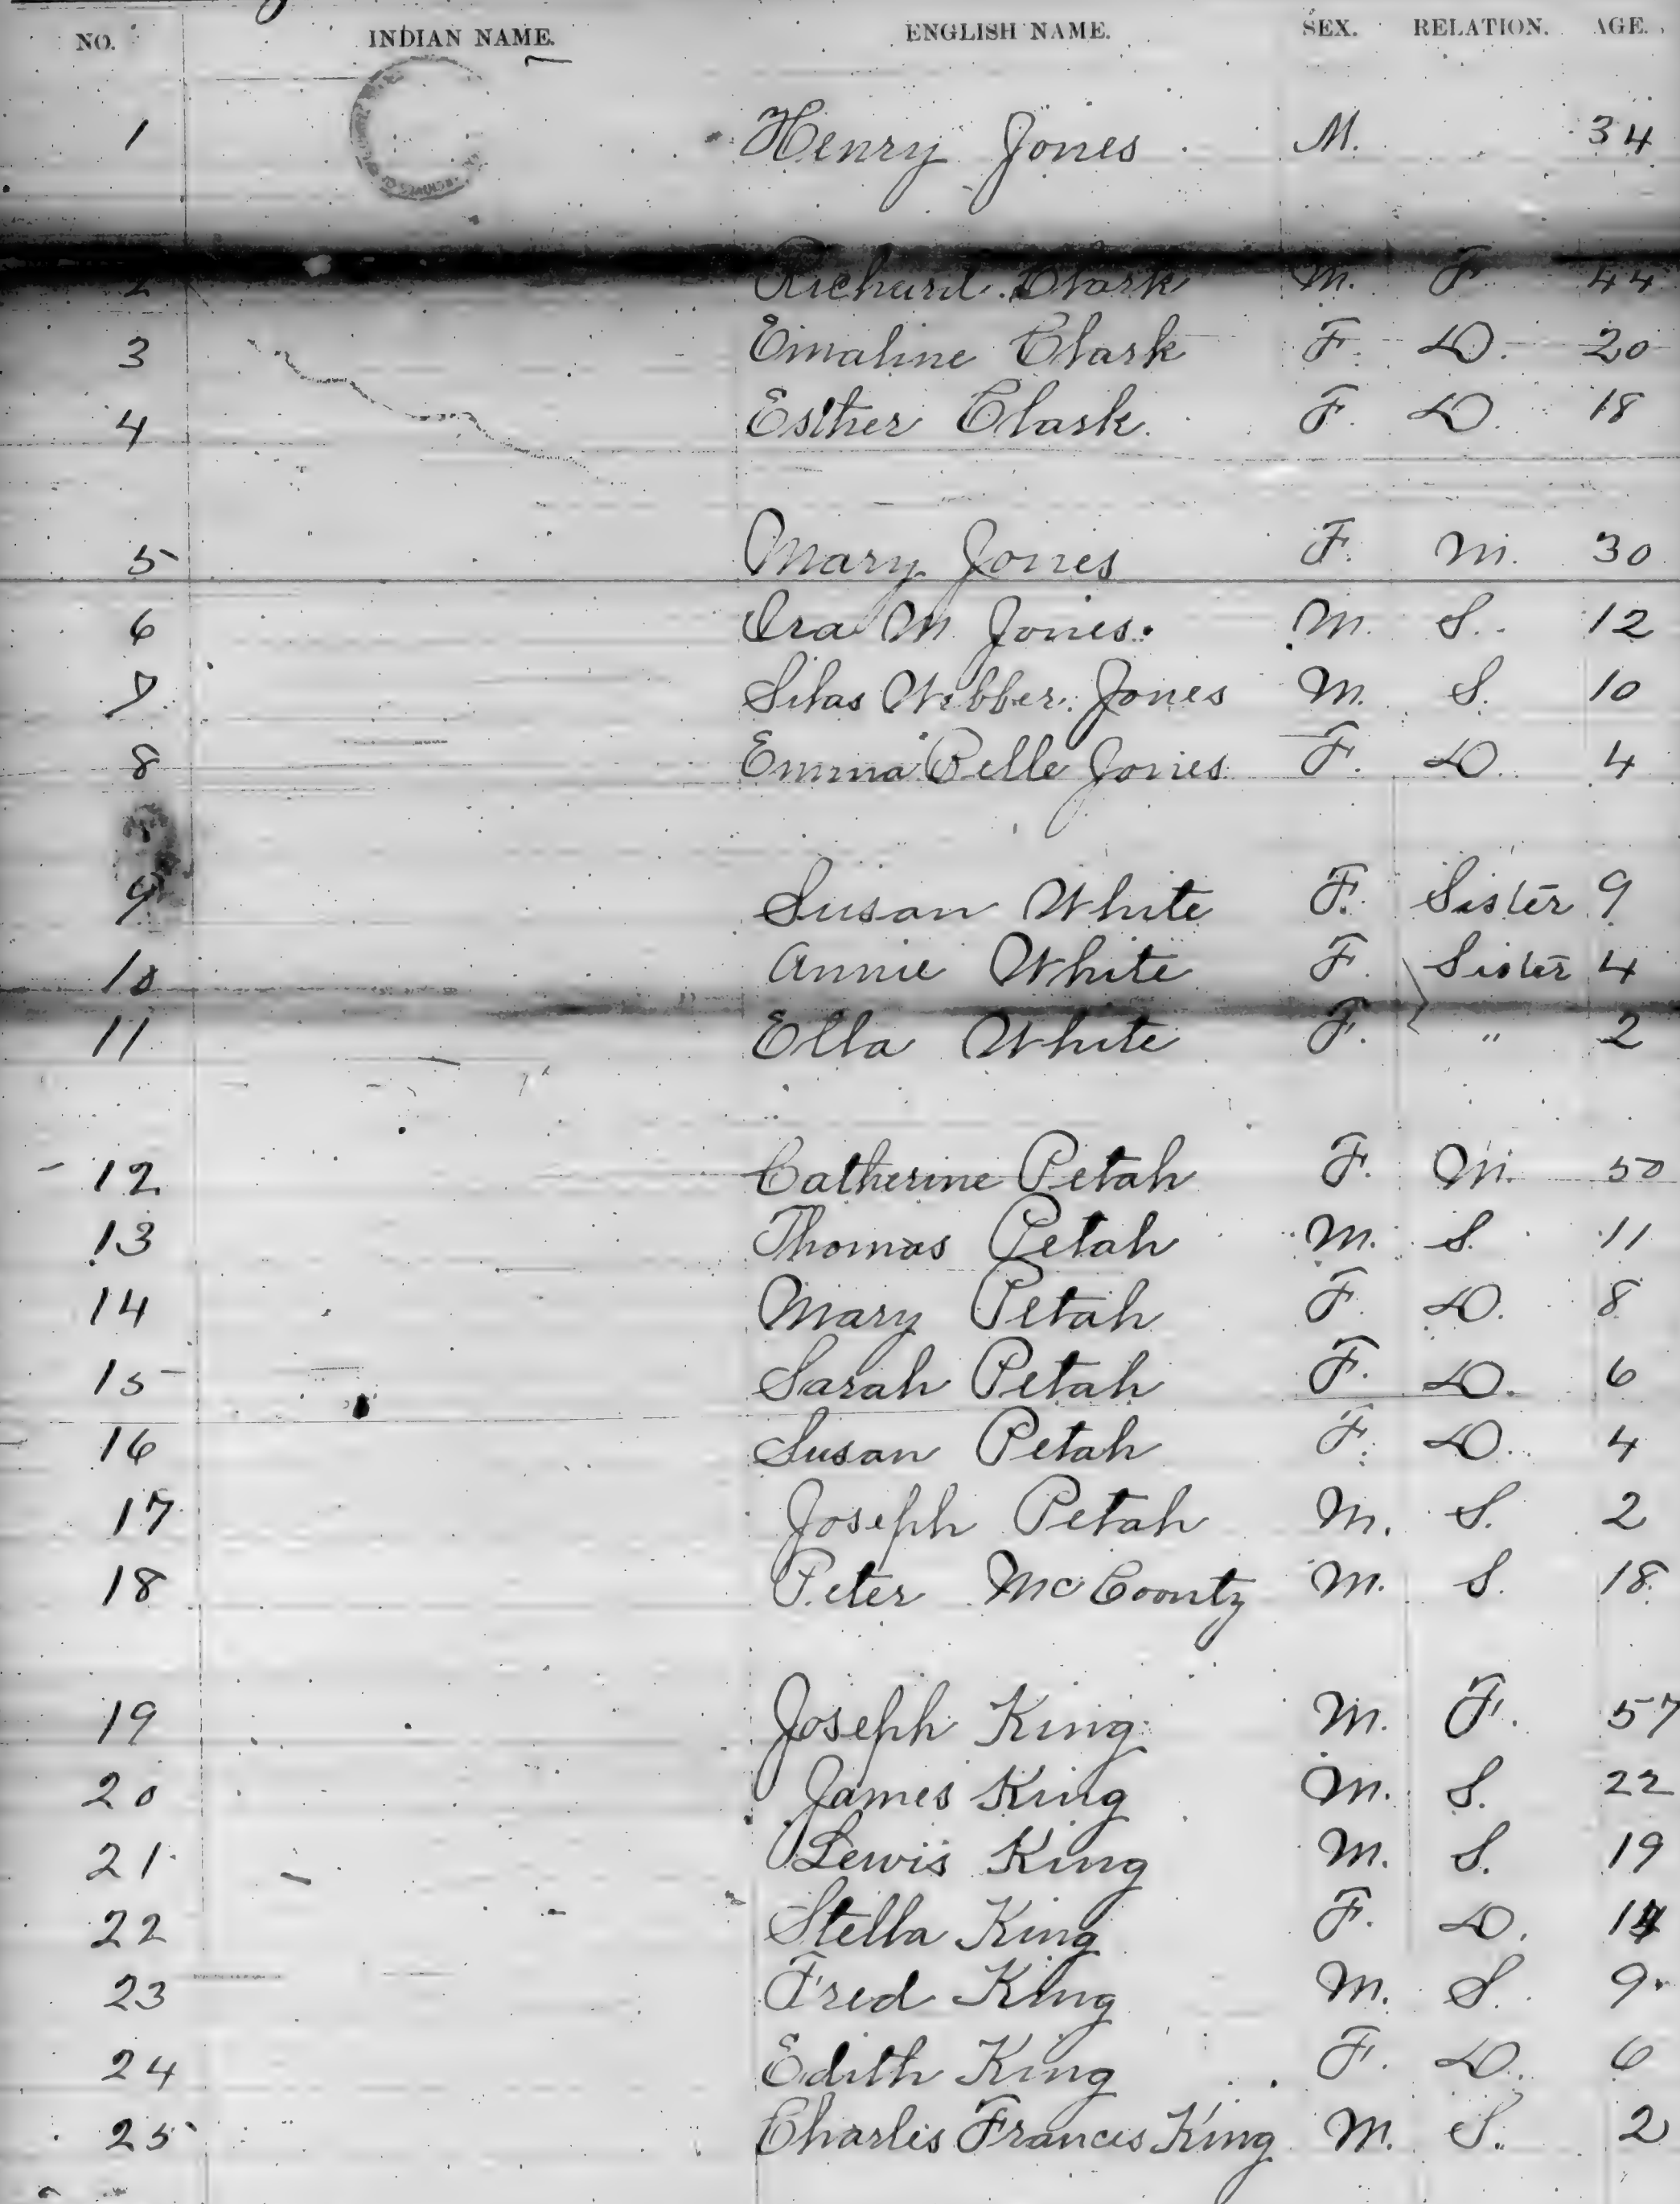 NO. INDIAN NAME. ENGLISH NAME. SEX. RELATION. AGE.
1 Henry Jones M. 34
2 Richard Clark M. F. 44
3 Emaline Clark F. D. 20
4 Esther Clark F. D. 18
5 Mary Jones F. M. 30
6 Ira M Jones. M. S. 12
7 Silas Webber Jones M. S. 10
8 Emma Belle Jones F. D. 4
9 Susan White F. Sister 9
10 Annie White F. Sister 4
11 Ella White F. " 2
12 Catherine Petah F. M. 50
13 Thomas Petah M. S. 11
14 Mary Petah F. D. 8
15 Sarah Petah F. D. 6
16 Susan Petah F. D. 4
17 Joseph Petah M. S. 2
18 Peter McCoontz M. S. 18
19 Joseph King M. F. 57
20 James King M. S. 22
21 Lewis King M. S. 19
22 Stella King F. D. 14
23 Fred King M. S. 9
24 Edith King F. D. 6
25 Charles Francis King M. S. 2